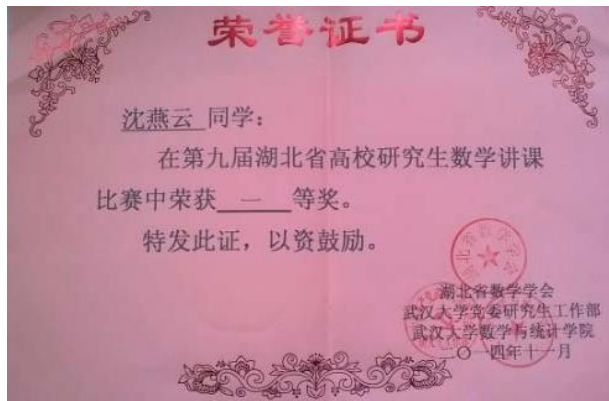 荣誉证书
沈燕云 同学：
在第九届湖北省高校研究生数学讲课
比赛中荣获 一 等奖。
特发此证，以资鼓励。
湖北省数学学会
湖北省数学学会
武汉大学党委研究生工作部
武汉大学数学与统计学院
二〇一四年十一月